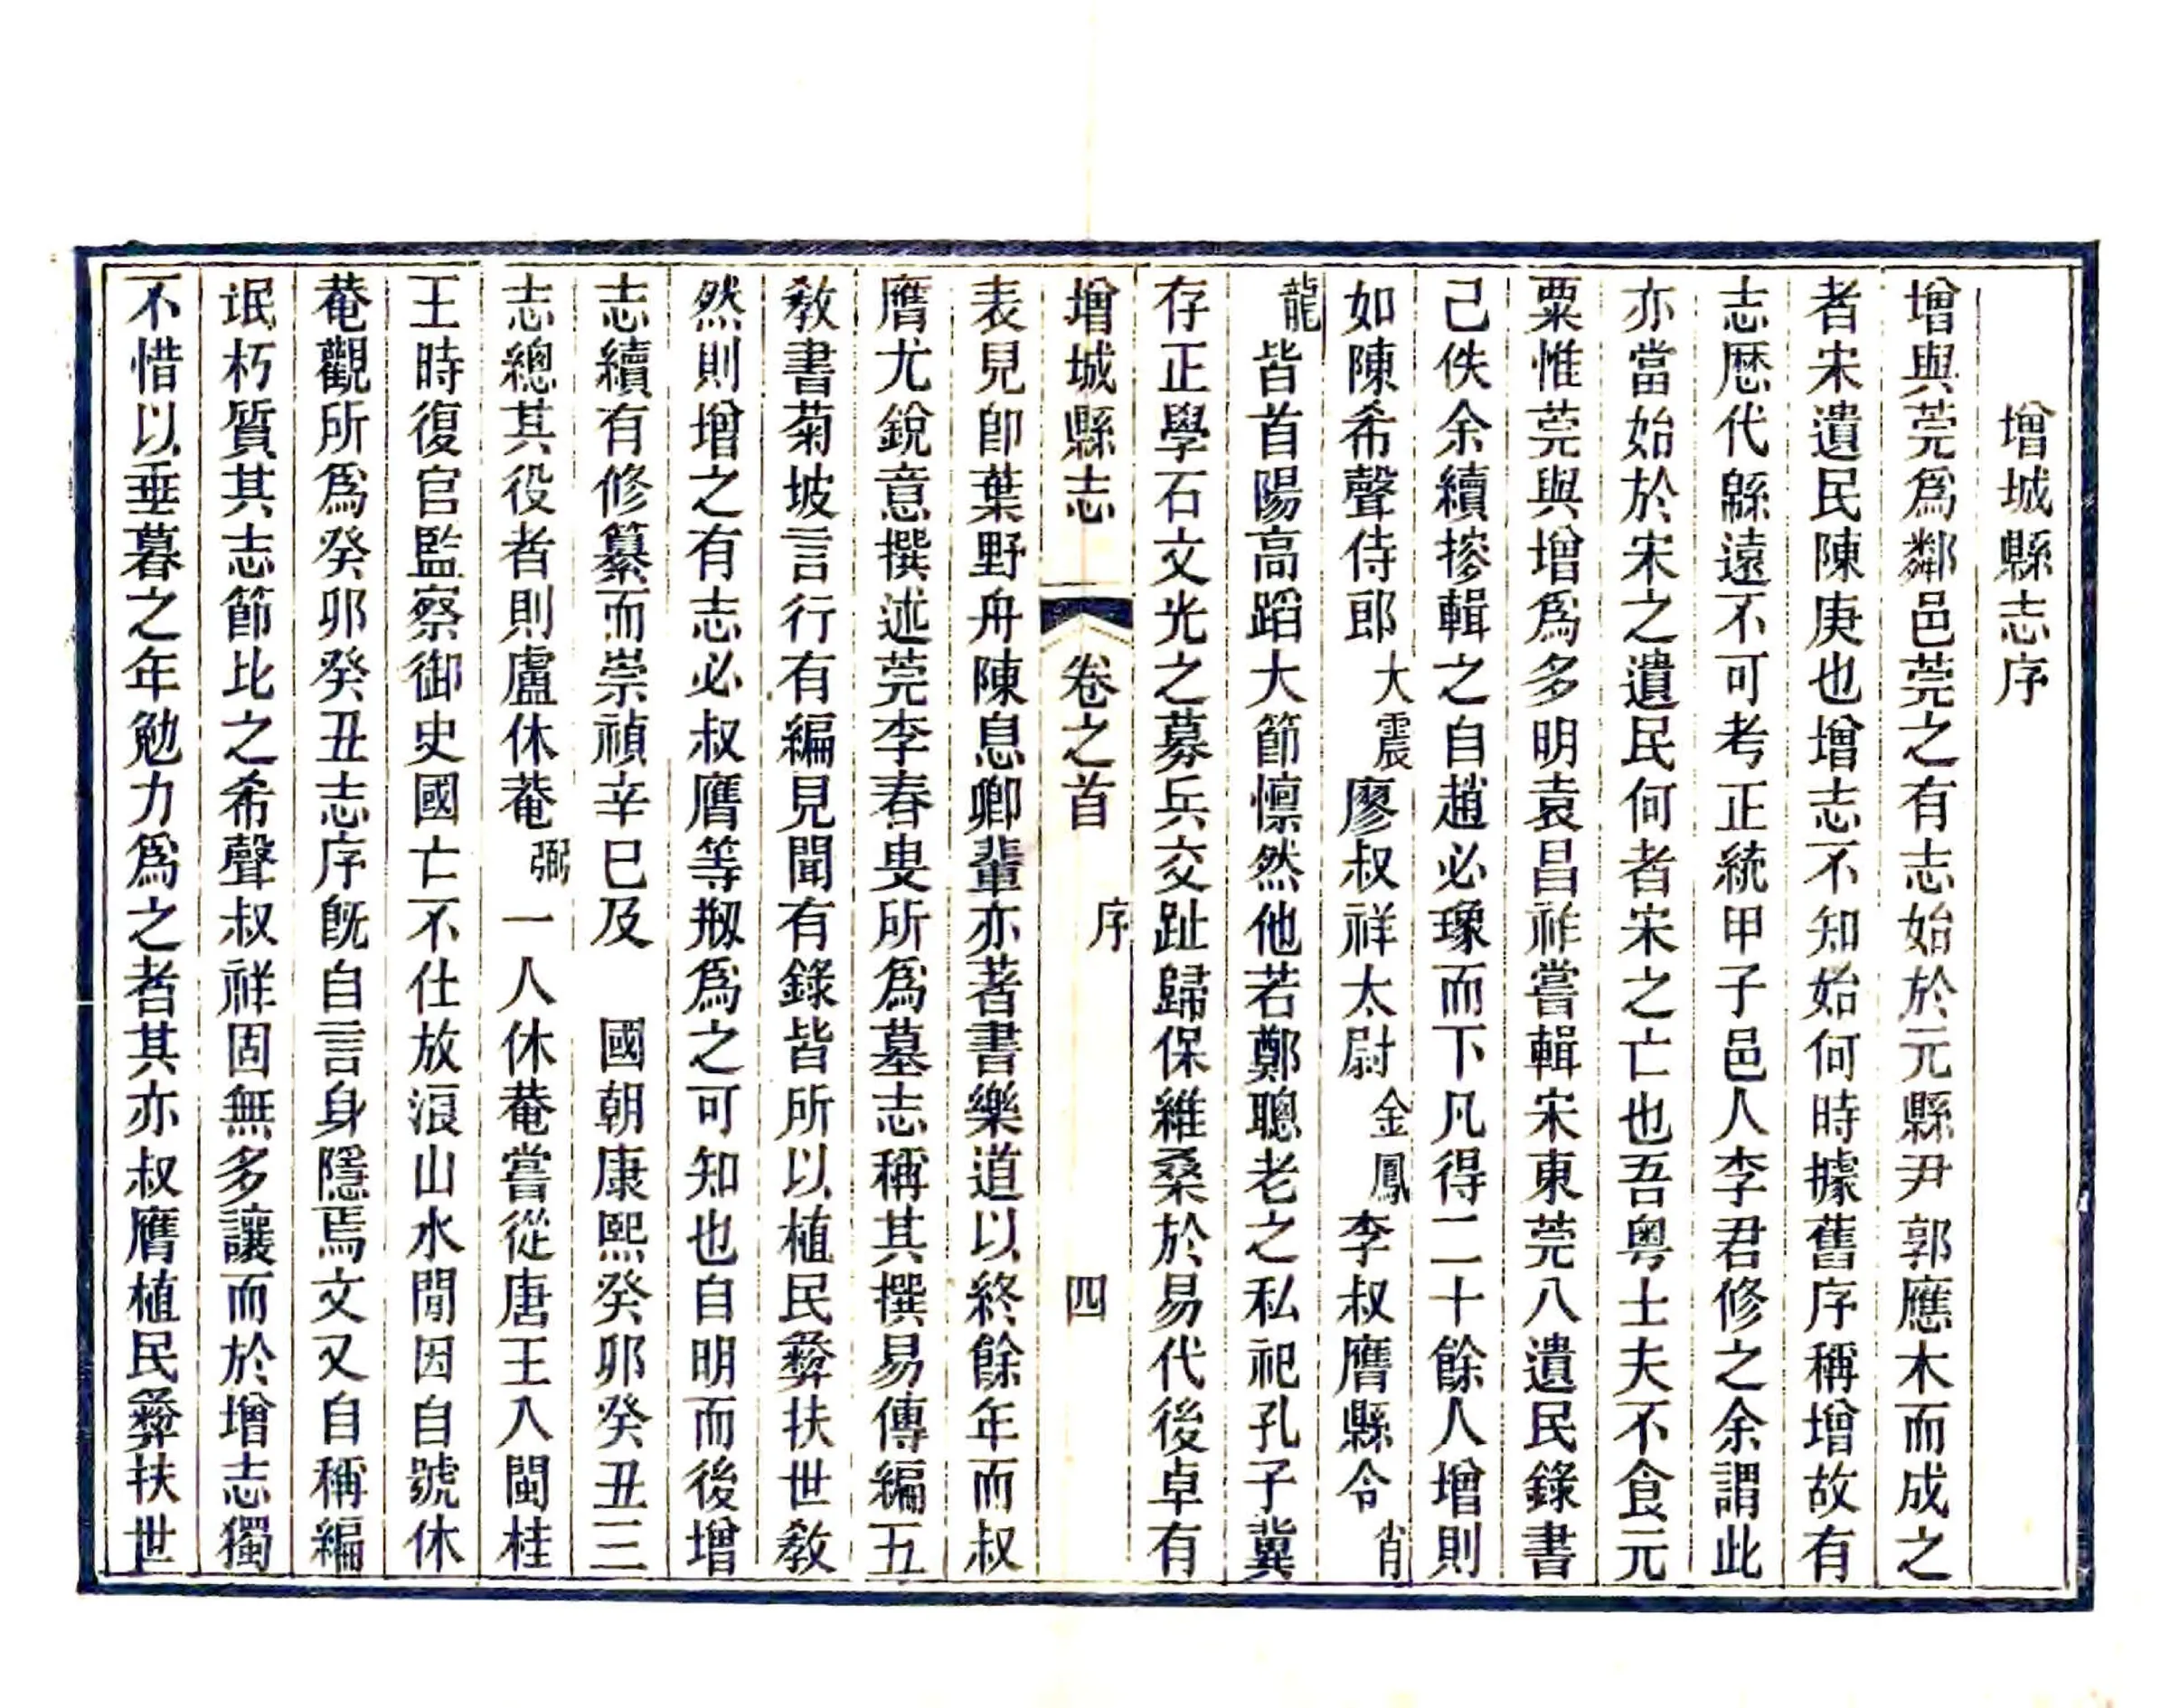 增城縣志序
增與莞爲鄰邑莞之有志始於元縣尹郭應木而成之
者宋遺民陳庚也增志不知始何時據舊序稱增故有
志歷代緜遠不可考正統甲子邑人李君修之余謂此
亦當始於宋之遺民何者宋之亡也吾粤士夫不食元
粟惟莞與增爲多明袁昌祚嘗輯宋東莞八遺民錄書
己佚余續摉輯之自趙必瑑而下凡得二十餘人增則
如陳希聲侍郎大震廖叔祥太尉金鳳李叔膺縣令肖
龍皆首陽高蹈大節懍然他若鄭聰老之私祀孔子冀
存正學石文光之募兵交趾歸保維桑於易代後卓有
增城縣志 卷之首 序 四
表見卽葉野舟陳息卿輩亦著書樂道以終餘年而叔
膺尤銳意撰述莞李春叟所爲墓志稱其撰易傳編五
敎書菊坡言行有編見聞有錄皆所以植民彝扶世敎
然則增之有志必叔膺等剏爲之可知也自明而後增
志續有修纂而崇禎辛巳及 國朝康熙癸卯癸丑三
志總其役者則盧休菴弼一人休菴嘗從唐王入閩桂
王時復官監察御史國亡不仕放浪山水閒因自號休
菴觀所爲癸卯癸丑志序旣自言身隱焉文又自稱編
氓朽質其志節比之希聲叔祥固無多讓而於增志獨
不惜以垂暮之年勉力爲之者其亦叔膺植民彝扶世